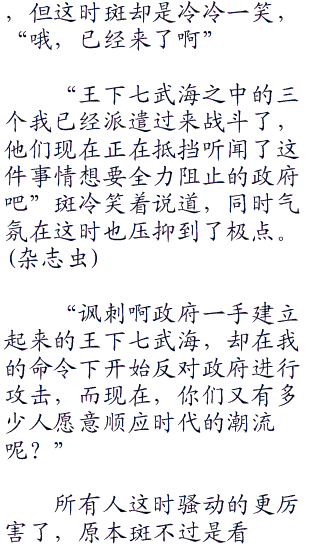 ，但这时斑却是冷冷一笑，
“哦，已经来了啊”
“王下七武海之中的三
个我已经派遣过来战斗了，
他们现在正在抵挡听闻了这
件事情想要全力阻止的政府
吧”斑冷笑着说道，同时气
氛在这时也压抑到了极点。
(杂志虫)
“讽刺啊政府一手建立
起来的王下七武海，却在我
的命令下开始反对政府进行
攻击，而现在，你们又有多
少人愿意顺应时代的潮流
呢？”
所有人这时骚动的更厉
害了，原本斑不过是看